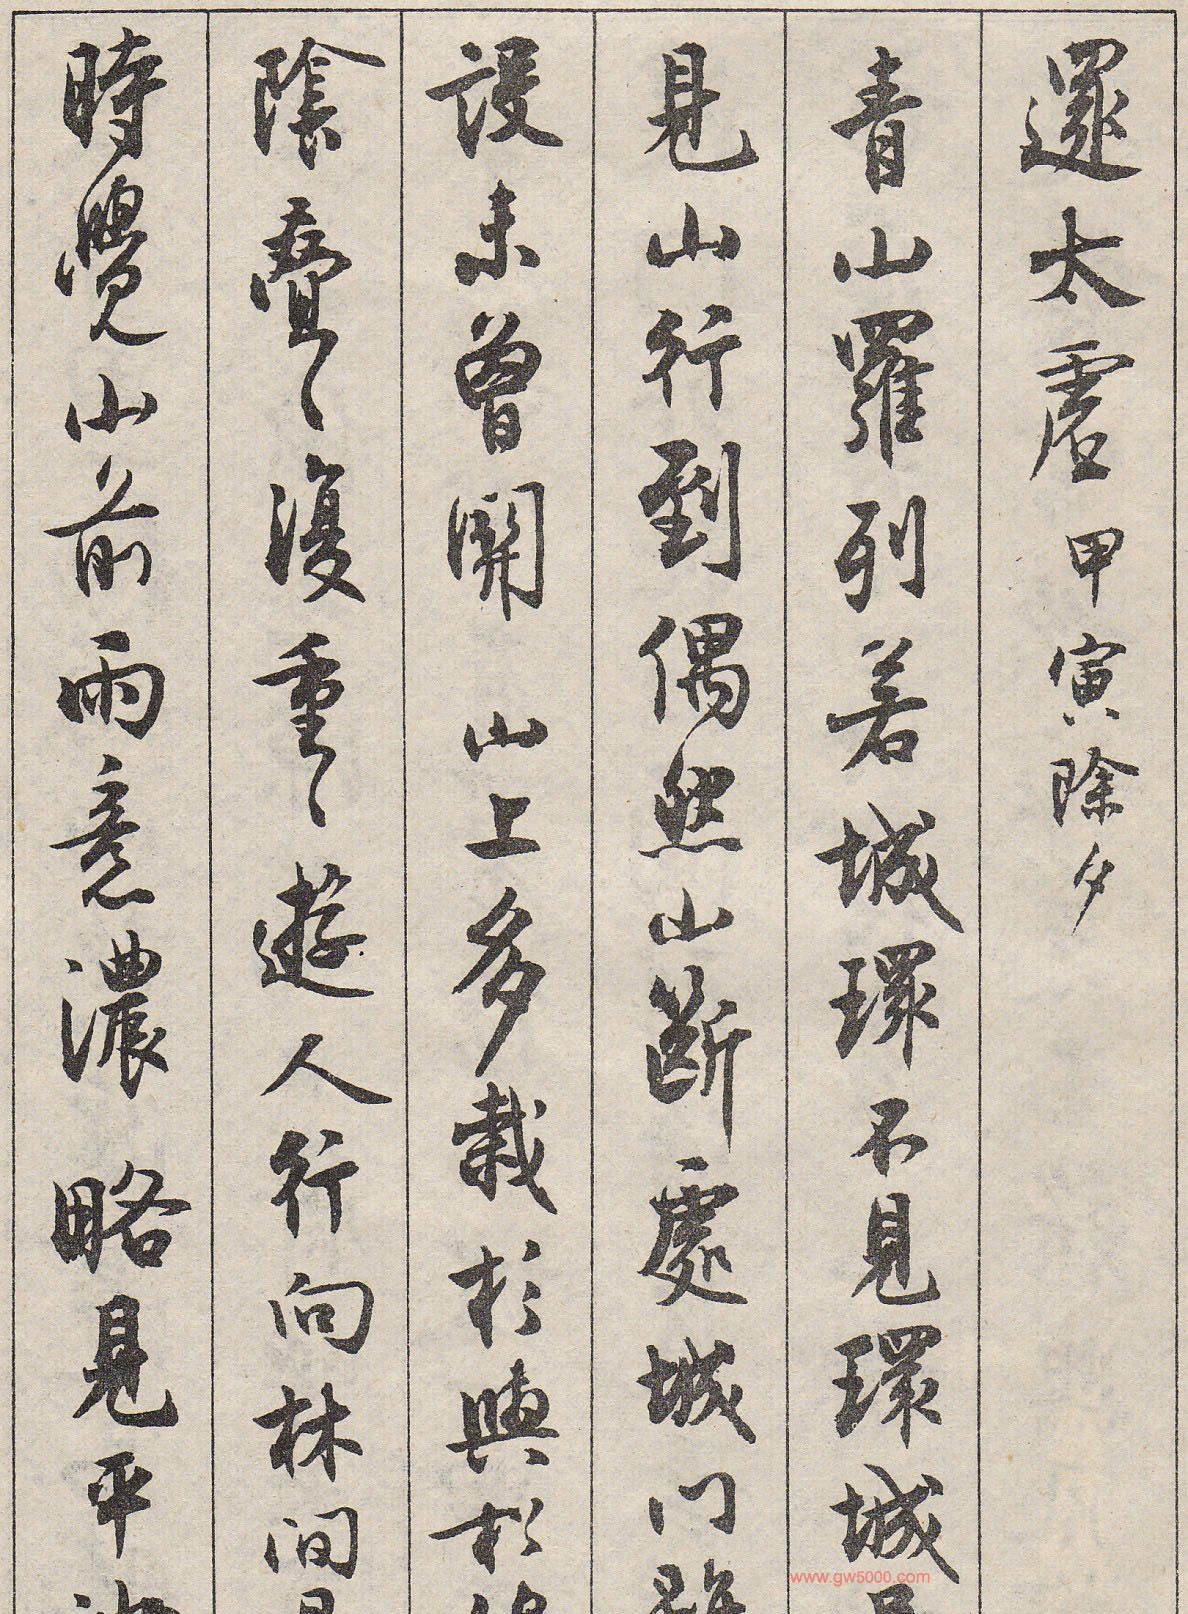 還太虛 甲寅除夕
青山羅列若城環不見環城
見山行到偶然山斷處城門
設未曾開 山上多栽杉與杉
陰疊〻復重〻遊人行向林間
時覺山前雨意濃 略見平
www.gw5000.com